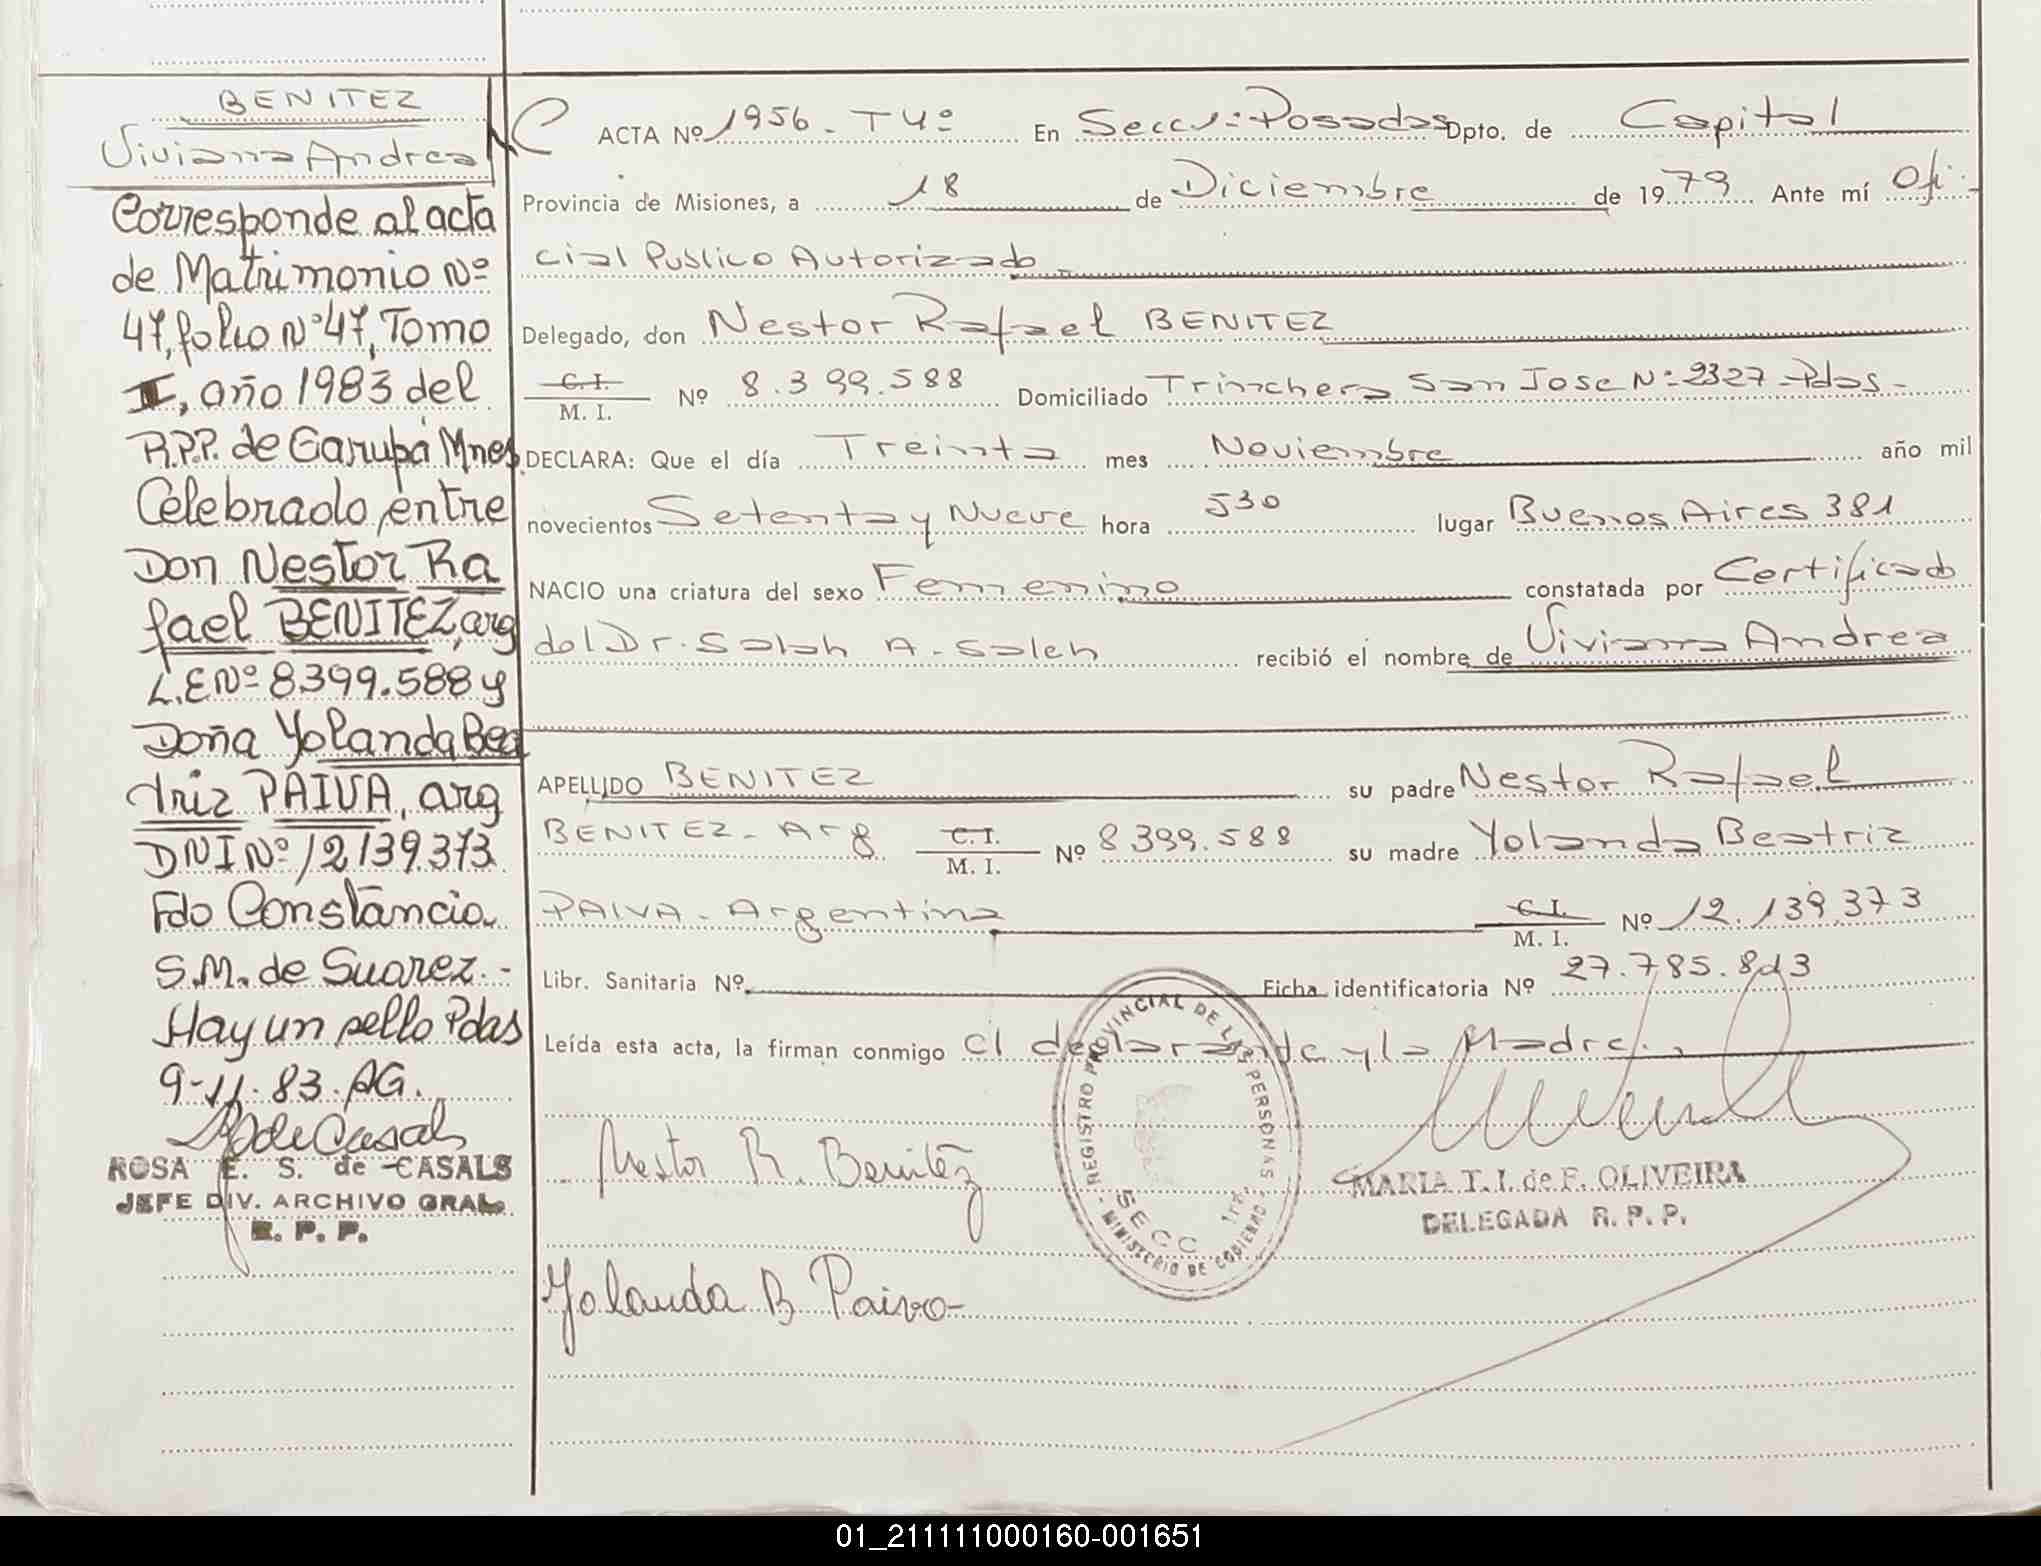 BENITEZ
Viviana Andrea
Corresponde al acta
de Matrimonio Nº
47, folio Nº 47, Tomo
II, año 1983 del
R.P.P. de Garupá Mnes
Celebrado, entre
Don Nestor Ra
fael BENITEZ, arg
L.E Nº 8399.588 y
Doña Yolanda Bea
triz PAIVA, arg
DNI Nº 12139.373
Fdo Constancia
S.M. de Suarez.-
Hay un sello Pdas
9-11-83. AG.
ROSA E. S. de CASALS
JEFE DIV. ARCHIVO GRAL.
R. P. P.
ACTA Nº 1956 - T 4º En Secc 1ª Posadas Dpto. de Capital
Provincia de Misiones, a 18 de Diciembre de 1979 Ante mí Ofi-
cial Publico Autorizado
Delegado, don Nestor Rafael BENITEZ
C. I.
M. I. Nº 8.399.588 Domiciliado Trinchera San Jose Nº 2327 - Pdas -
DECLARA: Que el día Treinta mes Noviembre año mil
novecientos Setenta y Nueve hora 530 lugar Buenos Aires 381
NACIO una criatura del sexo Femenino constatada por Certificado
del Dr. Salah A. Saleh recibió el nombre de Viviana Andrea
APELLIDO BENITEZ su padre Nestor Rafael
BENITEZ - Arg C. I.
M. I. Nº 8399.588 su madre Yolanda Beatriz
PAIVA - Argentina C. I.
M. I. Nº 12.139.373
Libr. Sanitaria Nº Ficha identificatoria Nº 27.785.813
Leída esta acta, la firman conmigo el declarante y la Madre.
Nestor R. Benitez
Yolanda B Paiva
REGISTRO PROVINCIAL DE LAS PERSONAS
MINISTERIO DE GOBIERNO
SECC 1ra.
MARIA T. I. de F. OLIVEIRA
DELEGADA R. P. P.
01_211111000160-001651